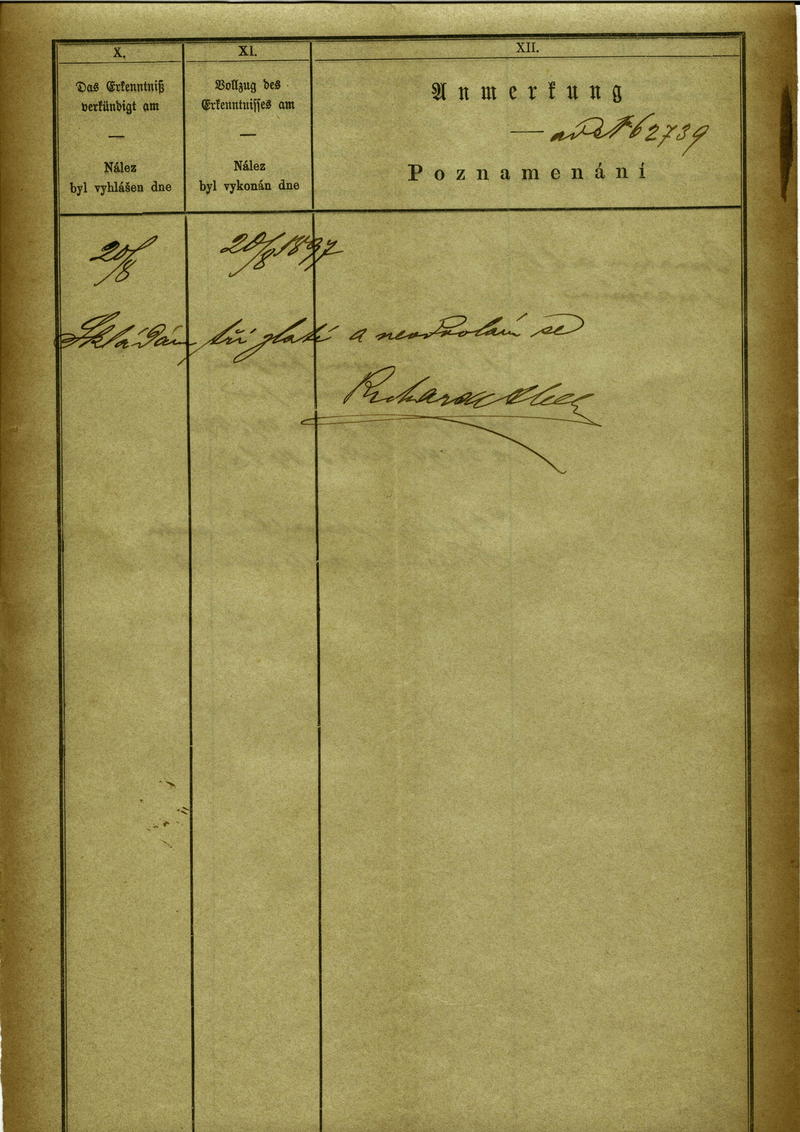 X.
XI.
XII.
Das Erkenntniß
verkündigt am
—
Nález
byl vyhlášen dne
Vollzug des
Erkenntnisses am
—
Nález
byl vykonán dne
Anmerkung
— ad No 62739
Poznamenání
20/8
20/8 1897
Skládám tři zlaté a neodvolám se
Richard